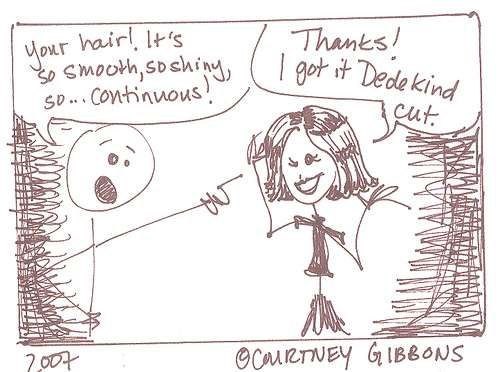 your hair! It's
so smooth, so shiny,
so... continuous!
Thanks!
I got it Dedekind
cut.
2007
©COURTNEY GIBBONS